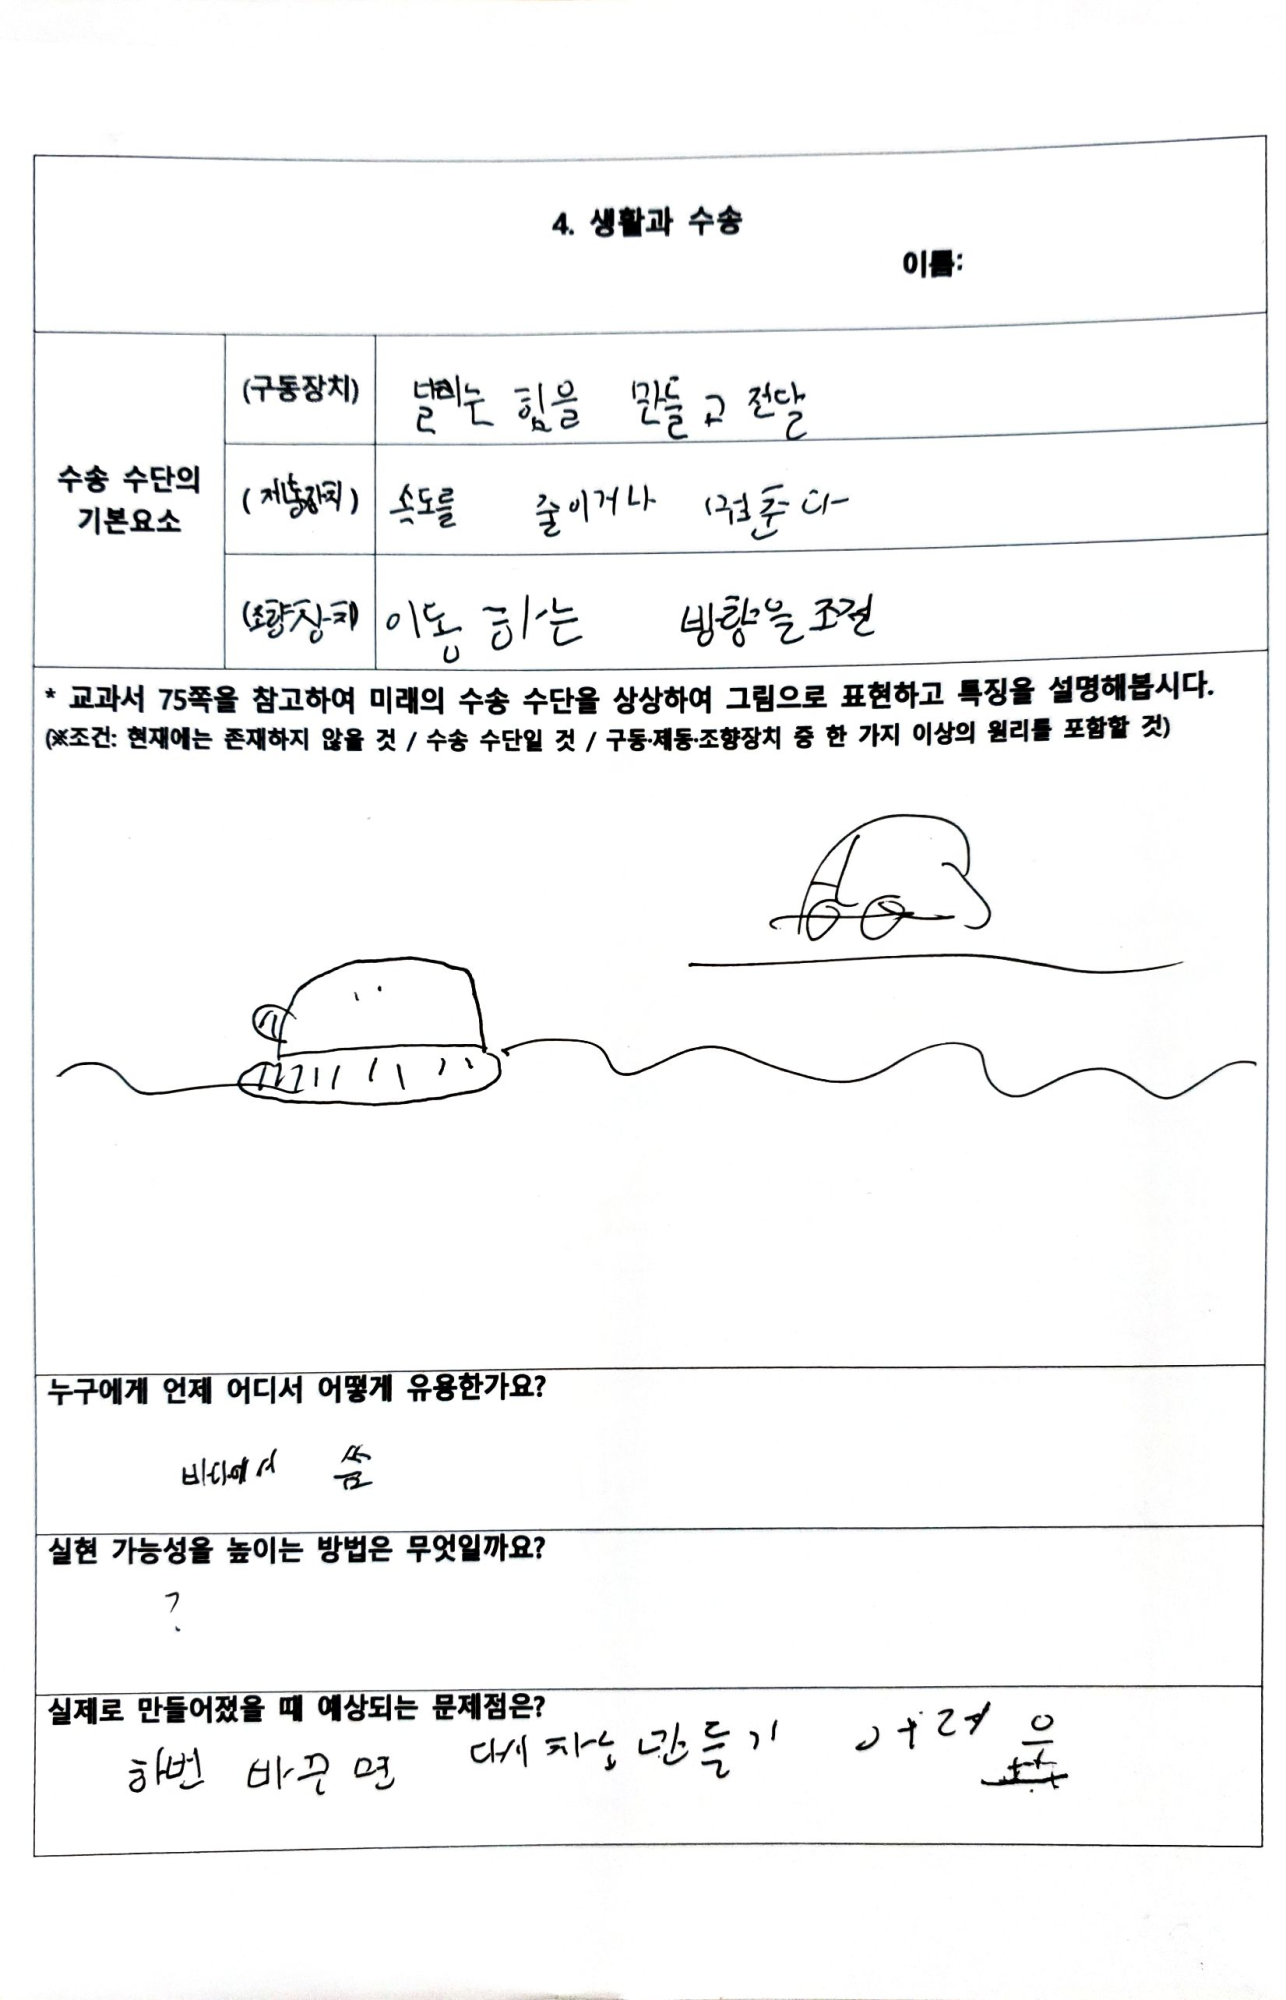 4. 생활과 수송
이름:
수송 수단의
기본요소
(구동장치)
힘을 만들고 전달
(제동장치)
속도를 줄이거나 멈춘다
(조향장치)
이동 하는 방향을 조절
* 교과서 75쪽을 참고하여 미래의 수송 수단을 상상하여 그림으로 표현하고 특징을 설명해봅시다.
(※조건: 현재에는 존재하지 않을 것 / 수송 수단일 것 / 구동·제동·조향장치 중 한 가지 이상의 원리를 포함할 것)
누구에게 언제 어디서 어떻게 유용한가요?
바다에서 씀
실현 가능성을 높이는 방법은 무엇일까요?
?
실제로 만들어졌을 때 예상되는 문제점은?
한번 바꾸면 다시 만들기 어려움